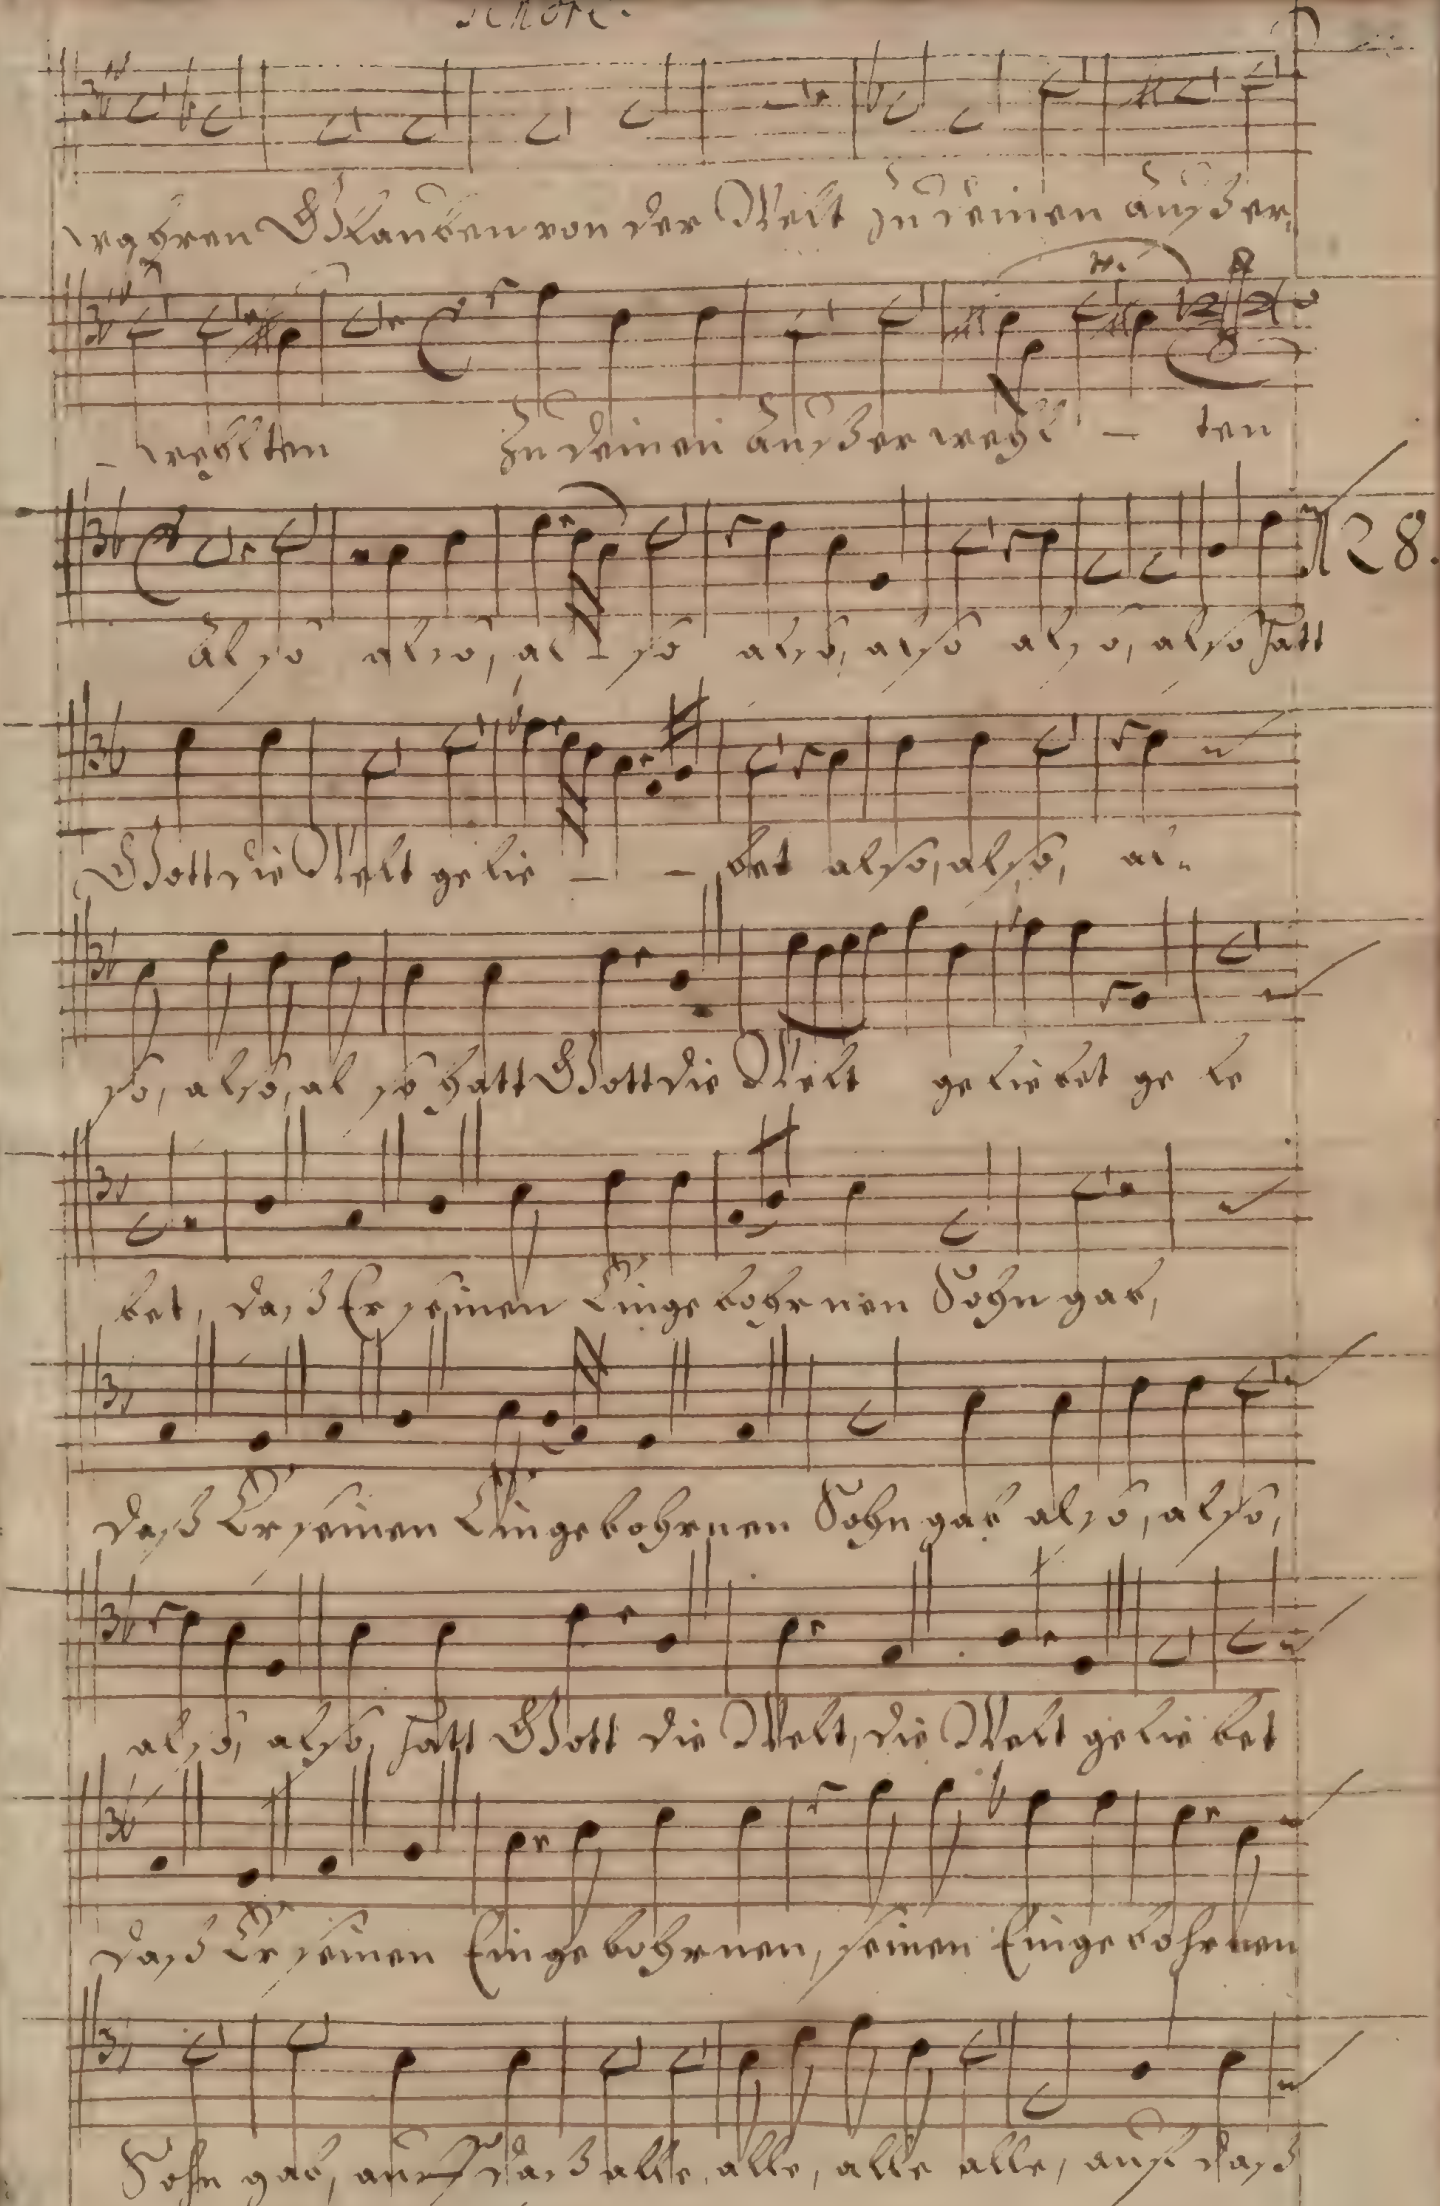 Tenore.
wahren Glauben von der Welt zu deinen außer-
- wehlten zu deinen außer wehl - ten
128.
Also also, al - so also, also also, also hatt
Gott die Welt gelie - - bet also, also, al-
so, also, al so hatt Gott die Welt geliebet ge lie
bet, daß Er seinen Eingebohrnen Sohn gab,
daß Er seinen Eingebohrnen Sohn gab also, also,
also, also, hatt Gott die Welt, die Welt gelie bet
daß Er seinen Eingebohrnen, seinen Eingebohrnen
Sohn gab, auff daß alle, alle, alle alle, auf daß